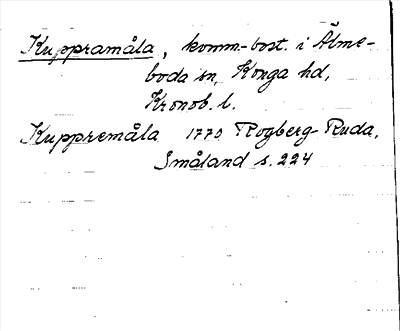 Kuppramåla, komm.-bost. i Älme-
boda sn, Konga hd,
Kronob. l.
Kuppremåla 1770 Rogberg-Ruda,
Småland s. 224